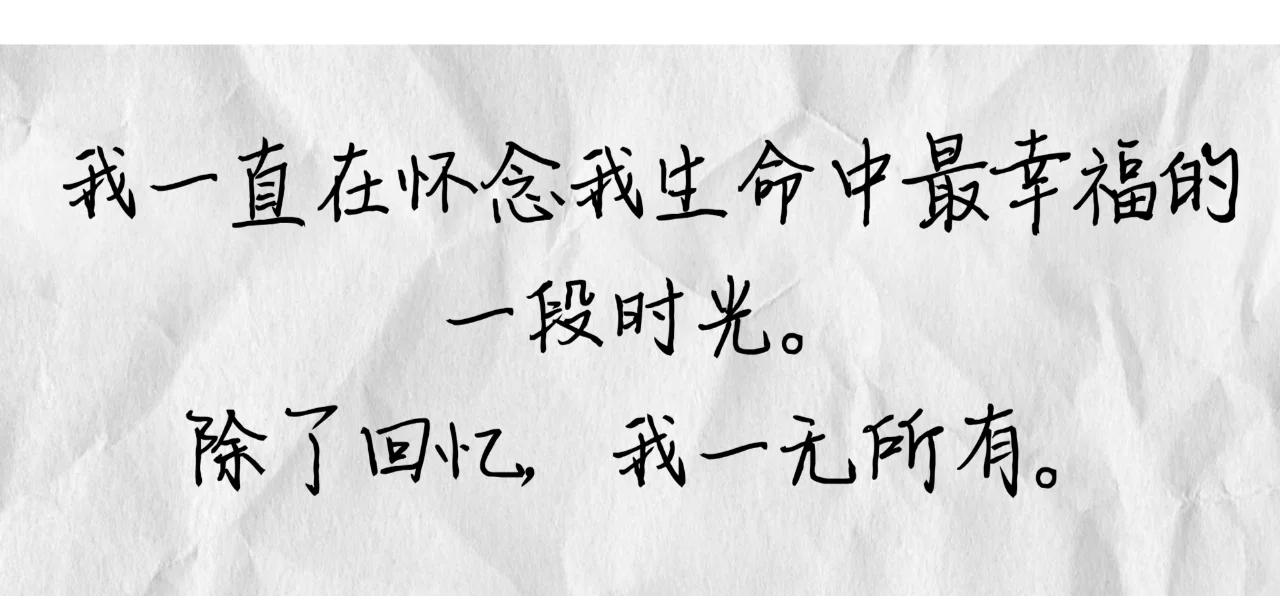 我一直在怀念我生命中最幸福的
一段时光。
除了回忆，我一无所有。